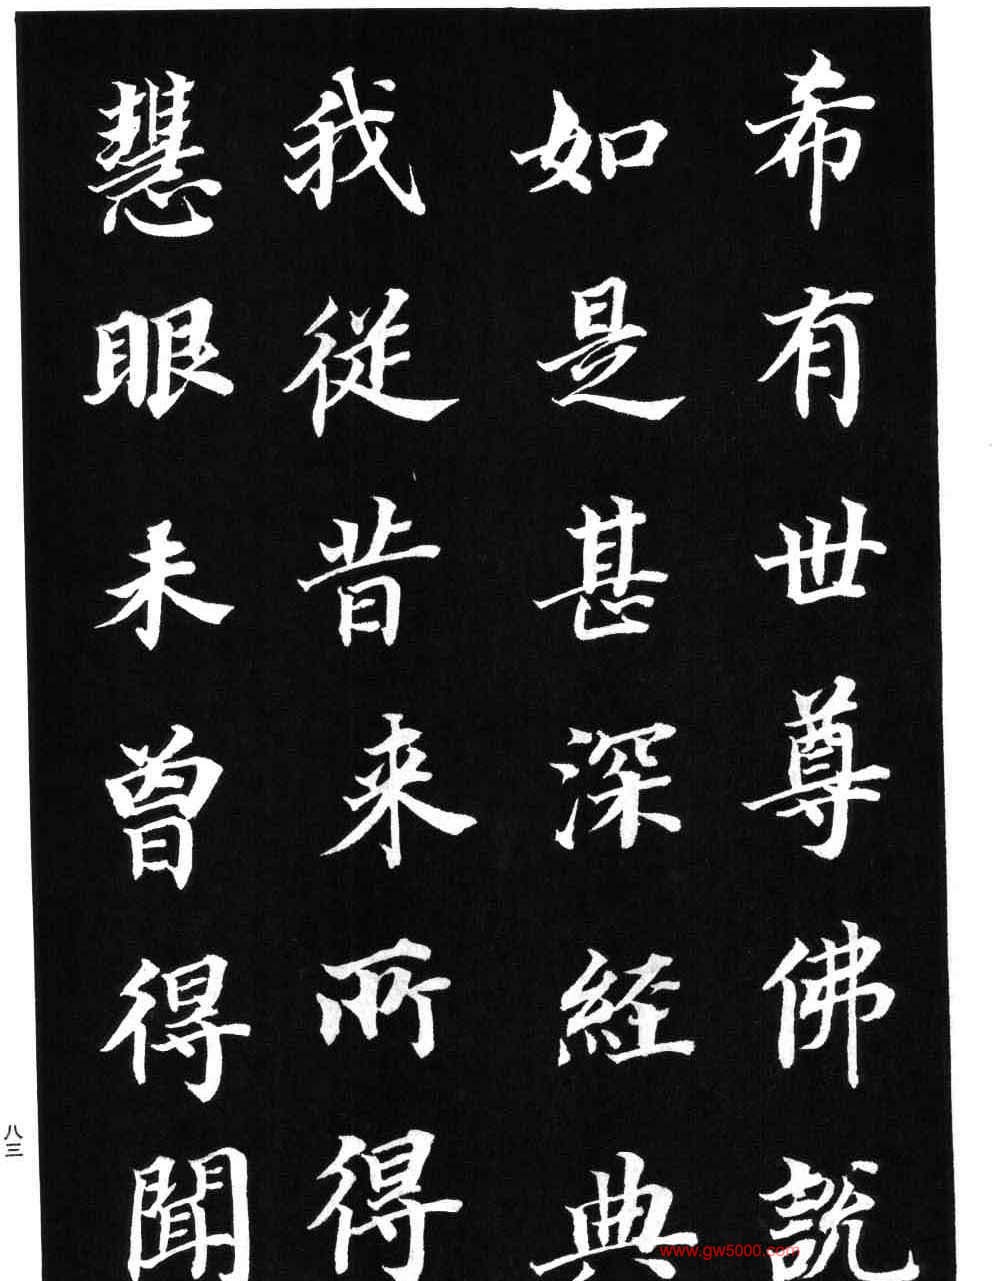 希有世尊佛説
如是甚深經典
我從昔來所得
慧眼未曾得聞
八三
www.gw5000.com